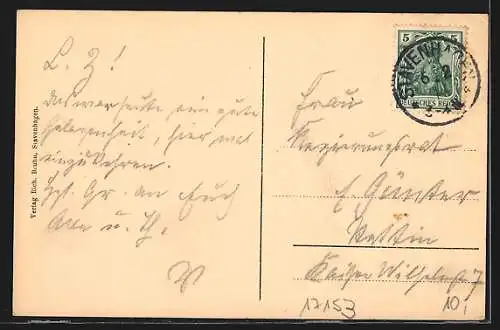 L. Z!
Das war heute eine gute
Gelegenheit, hier mal
einzukehren.
Hzl. Gr. an Euch
Alle u. H.
W
Verlag Rich. Bruhn, Stavenhagen.
5
DEUTSCHES REICH
STAVENHAGEN
Frau
Regierungsrat
E. Günther
Stettin
Kaiser Wilhelmstr 7
17153
10,